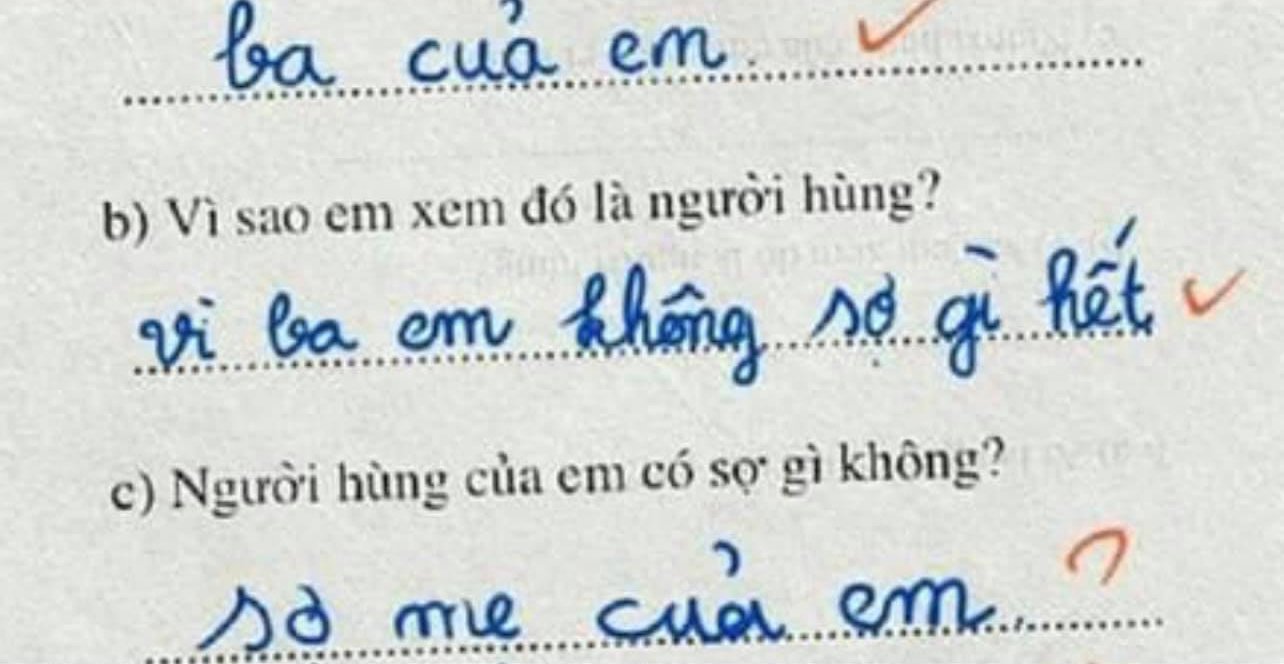 ba của em.
b) Vì sao em xem đó là người hùng?
vì ba em không sợ gì hết
c) Người hùng của em có sợ gì không?
sợ mẹ của em.